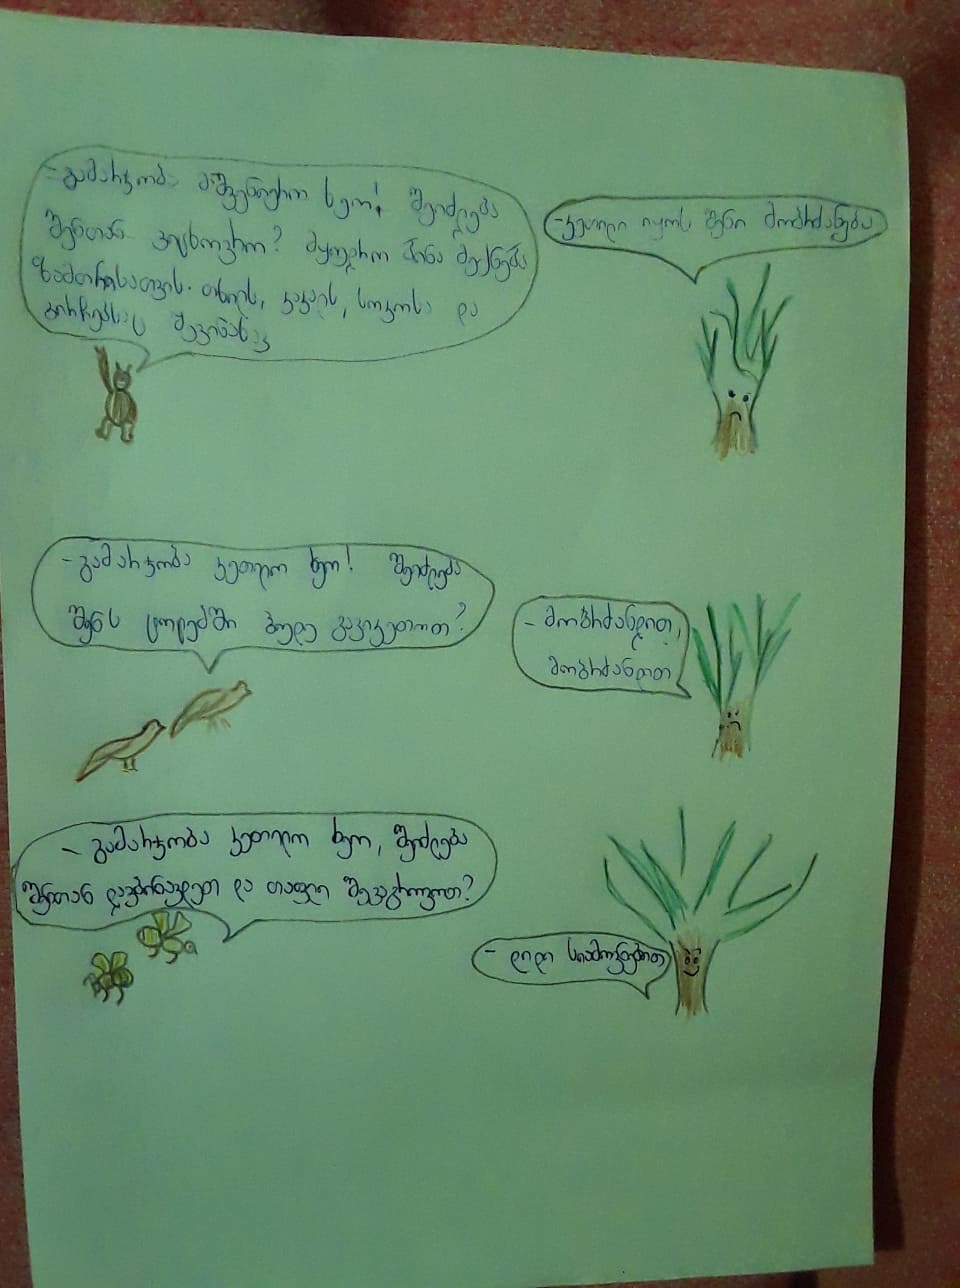 - გამარჯობა მშვენიერო ხეო! შეიძლება
შენთან ვიცხოვრო? მყუდრო ბინა მექნება
ზამთრისათვის. თხილს, კაკალს, სოკოსა და
გირჩებსაც შევინახავ
- კეთილი იყოს შენი მობრძანება
- გამარჯობა კეთილო ხეო! შეიძლება
შენს ტოტებში ბუდე გავიკეთოთ?
- მობრძანდით,
მობრძანდით
- გამარჯობა კეთილო ხეო, შეიძლება
შენთან დავბინავდეთ და თაფლი შევაგროვოთ?
- დიდი სიამოვნებით